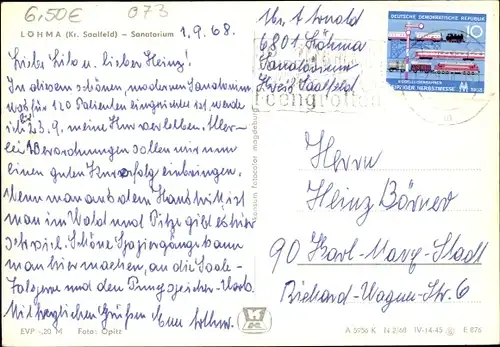 6,50€ 073
LOHMA (Kr. Saalfeld) – Sanatorium
1.9.68.
Liebe Lilo u. lieber Heinz!
In diesem schönen, modernen Sanatorium,
was für 120 Patienten eingerichtet ist, werde
ich bis 23.9. meine Kur verleben. Aller-
lei Verordnungen sollen mir nun
einen guten Kurerfolg einbringen.
Wenn man aus dem Haus tritt ist
man im Wald und Pilze gibt es hier
sehr viel. Schöne Spaziergänge kann
man hier machen, an die Saale-
und den Pumpspeicher-
Mit herzlichen Grüßen Euer
EVP -,20 M Foto: Opitz
konsum fotoatelier magdeburg
Arnold
6801 Löhma
Sanatorium
Kreis Saalfeld
Feengrotten
DEUTSCHE DEMOKRATISCHE REPUBLIK
10
LEIPZIGER HERBSTMESSE 1968
Herrn
Heinz Börner
90 Karl-Marx-Stadt
Richard-Wagner-Str. 6
A 5256 K N 2/68 IV-14-45 E 876